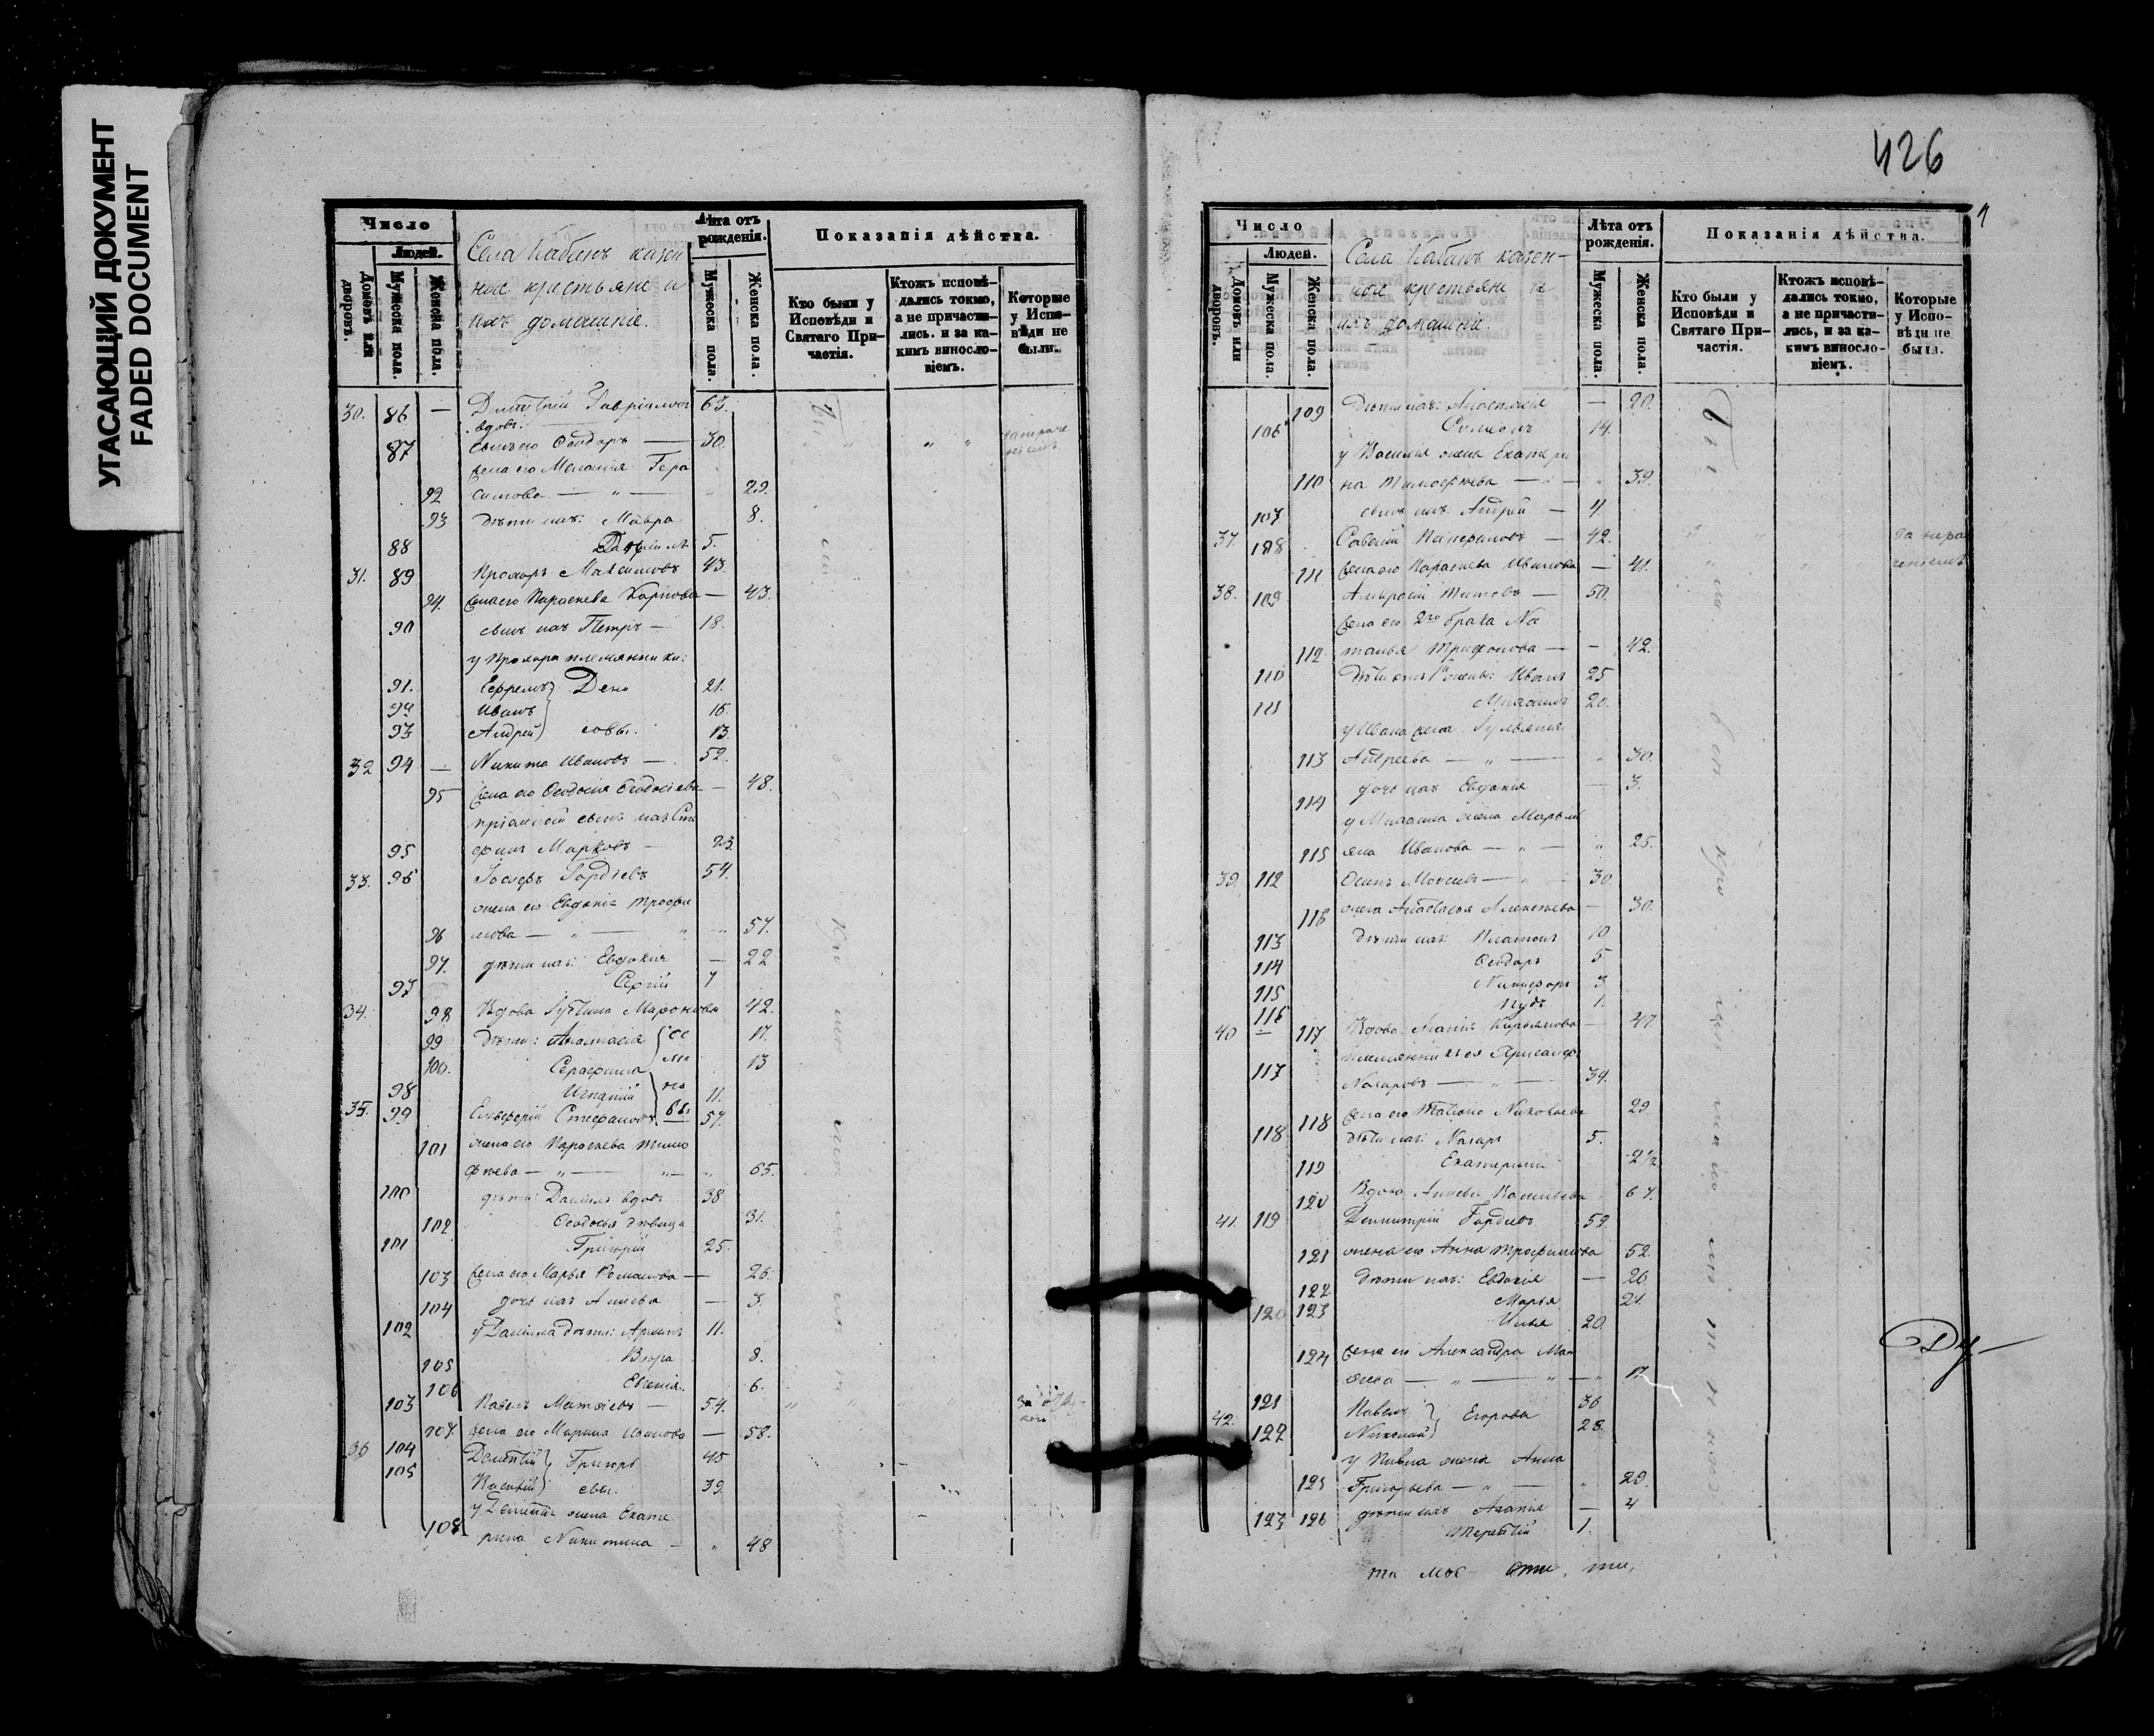 УГАСАЮЩИЙ ДОКУМЕНТ
FADED DOCUMENT
Число
Людей.
Домовъ или дворовъ.
Мужеска пола.
Женска пола.
Села Кабанъ казен
ные крестьяне и
ихъ домашніе.
Лѣта отъ рожденія.
Мужеска пола.
Женска пола.
Показанія дѣйства.
Кто были у Исповѣди и Святаго Причастія.
Ктожъ исповѣдались токмо, а не причастились, и за какимъ винословіемъ.
Которые у Исповѣди не были.
30. 86 — Дмитрій Гавріиловъ 63.
вдовъ.
87 сынъ его Ѳеодоръ — 30.
жена его Меланія Гера
92 симова — „ — 29.
93 дѣти ихъ: Мавра 8.
88 Гавріилъ 5.
31. 89 Прохоръ Максимовъ 43.
94. жена его Параскева Карпова — 43.
90 сынъ ихъ Петръ — 18.
у Прохора племянники:
91. Ефремъ } Дени 21.
92 Иванъ 16.
93 Андрей } совы. 13.
32 94 — Никита Ивановъ — 52.
95 жена его Ѳеодосія Ѳеодосіева — 48.
пріемный сынъ ихъ Сте
95 фанъ Марковъ — 23.
33. 96 Іосифъ Гордіевъ 54.
жена его Евдокія Трофи
96 мова — „ — „ 57.
97. дѣти ихъ: Евдокія — 22
97 Сергій 7
34. 98 Вдова Іустина Миронова 42.
99 дѣти: Анастасія 17.
100. Серафима 13
98 Игнатій 11.
35. 99 Елевферій Стефановъ 57.
101 жена его Параскева Тимо
фѣева — „ — „ 65.
100 дѣти: Даніилъ вдовъ 38
102 Ѳеодосья дѣвица 31.
101 Григорій 25.
103 жена его Марья Романова — 26.
104 дочь ихъ Анисья — 3.
102 у Даніила дѣти: Архипъ 11.
105 Вѣра 8.
106 Евгенія. 6.
103 Павелъ Матѳіевъ — 54.
107. жена его Марина Иванова — 58.
36 104 Дементій } Григорь 45
105 Василій } евы. 39.
у Дементія жена Екате
108 рина Никитина — „ 48
426
Число
Людей.
Домовъ или дворовъ.
Мужеска пола.
Женска пола.
Села Кабанъ казен-
ные крестьяне и
ихъ домашніе.
Лѣта отъ рожденія.
Мужеска пола.
Женска пола.
Показанія дѣйства.
Кто были у Исповѣди и Святаго Причастія.
Ктожъ исповѣдались токмо, а не причастились, и за какимъ винословіемъ.
Которые у Исповѣди не были.
109 дѣти ихъ: Анастасія — 20.
106 Симеонъ 14.
у Василія жена Екатери
110 на Тимофѣева — „ — „ 39.
107 сынъ ихъ Андрей — 4.
37. 108 Савелій — 42.
111 жена его Параскева Иванова — 41.
38. 109 Амвросій Титовъ — 50.
жена его 2го брака На
112 талья Трифонова — — 42.
110 Дѣти отъ 1й жены: Иванъ 25
111 Михаилъ 20.
у Ивана жена Гульянія
113 Андреева — „ — „ 30.
114 дочь ихъ Евдокія — 3.
у Михаила жена Марьи
115 яна Иванова — „ — „ 25.
39. 112 Осипъ Моисеевъ — „ — 30.
116 жена Анастасья Алексѣева — 30.
113 дѣти ихъ: Платонъ 10
114 Ѳеодоръ 5
115 Никифоръ 3
116 Пудъ 1.
40 117 Вдова Агапія Кирьянова — 47.
племянникъ ея
117 Назаровъ — „ — 34.
118 жена его Татіана Николаева 29.
118 дѣти ихъ: Назаръ 5.
119 Екатерина 2 1/2
120 Вдова Анисья Васильева 67.
41. 119 Димитрій Гордіевъ 59.
121 жена его Анна Трофимова 52.
122 дѣти ихъ: Евдокія — 26.
123 Марья 21.
120 Илья 20.
124 жена его Александра Мак
сима — „ — „ — „ 17.
42. 121 Павелъ } Егоровы 36
122 Николай } 28.
у Павла жена Анна
125 Григорьева — „ — „ 29.
126 дѣти ихъ Агапія — 4
123 Терентій 1.